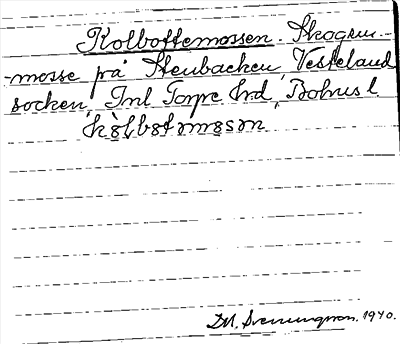 Kolbottemossen. Skogsm-
-mosse på Stenbacken Vesteland
socken, Inl Torpe hrd, Bohusl.
kɔlbɔtəmɔsən
D.N. Svenningson. 1940.